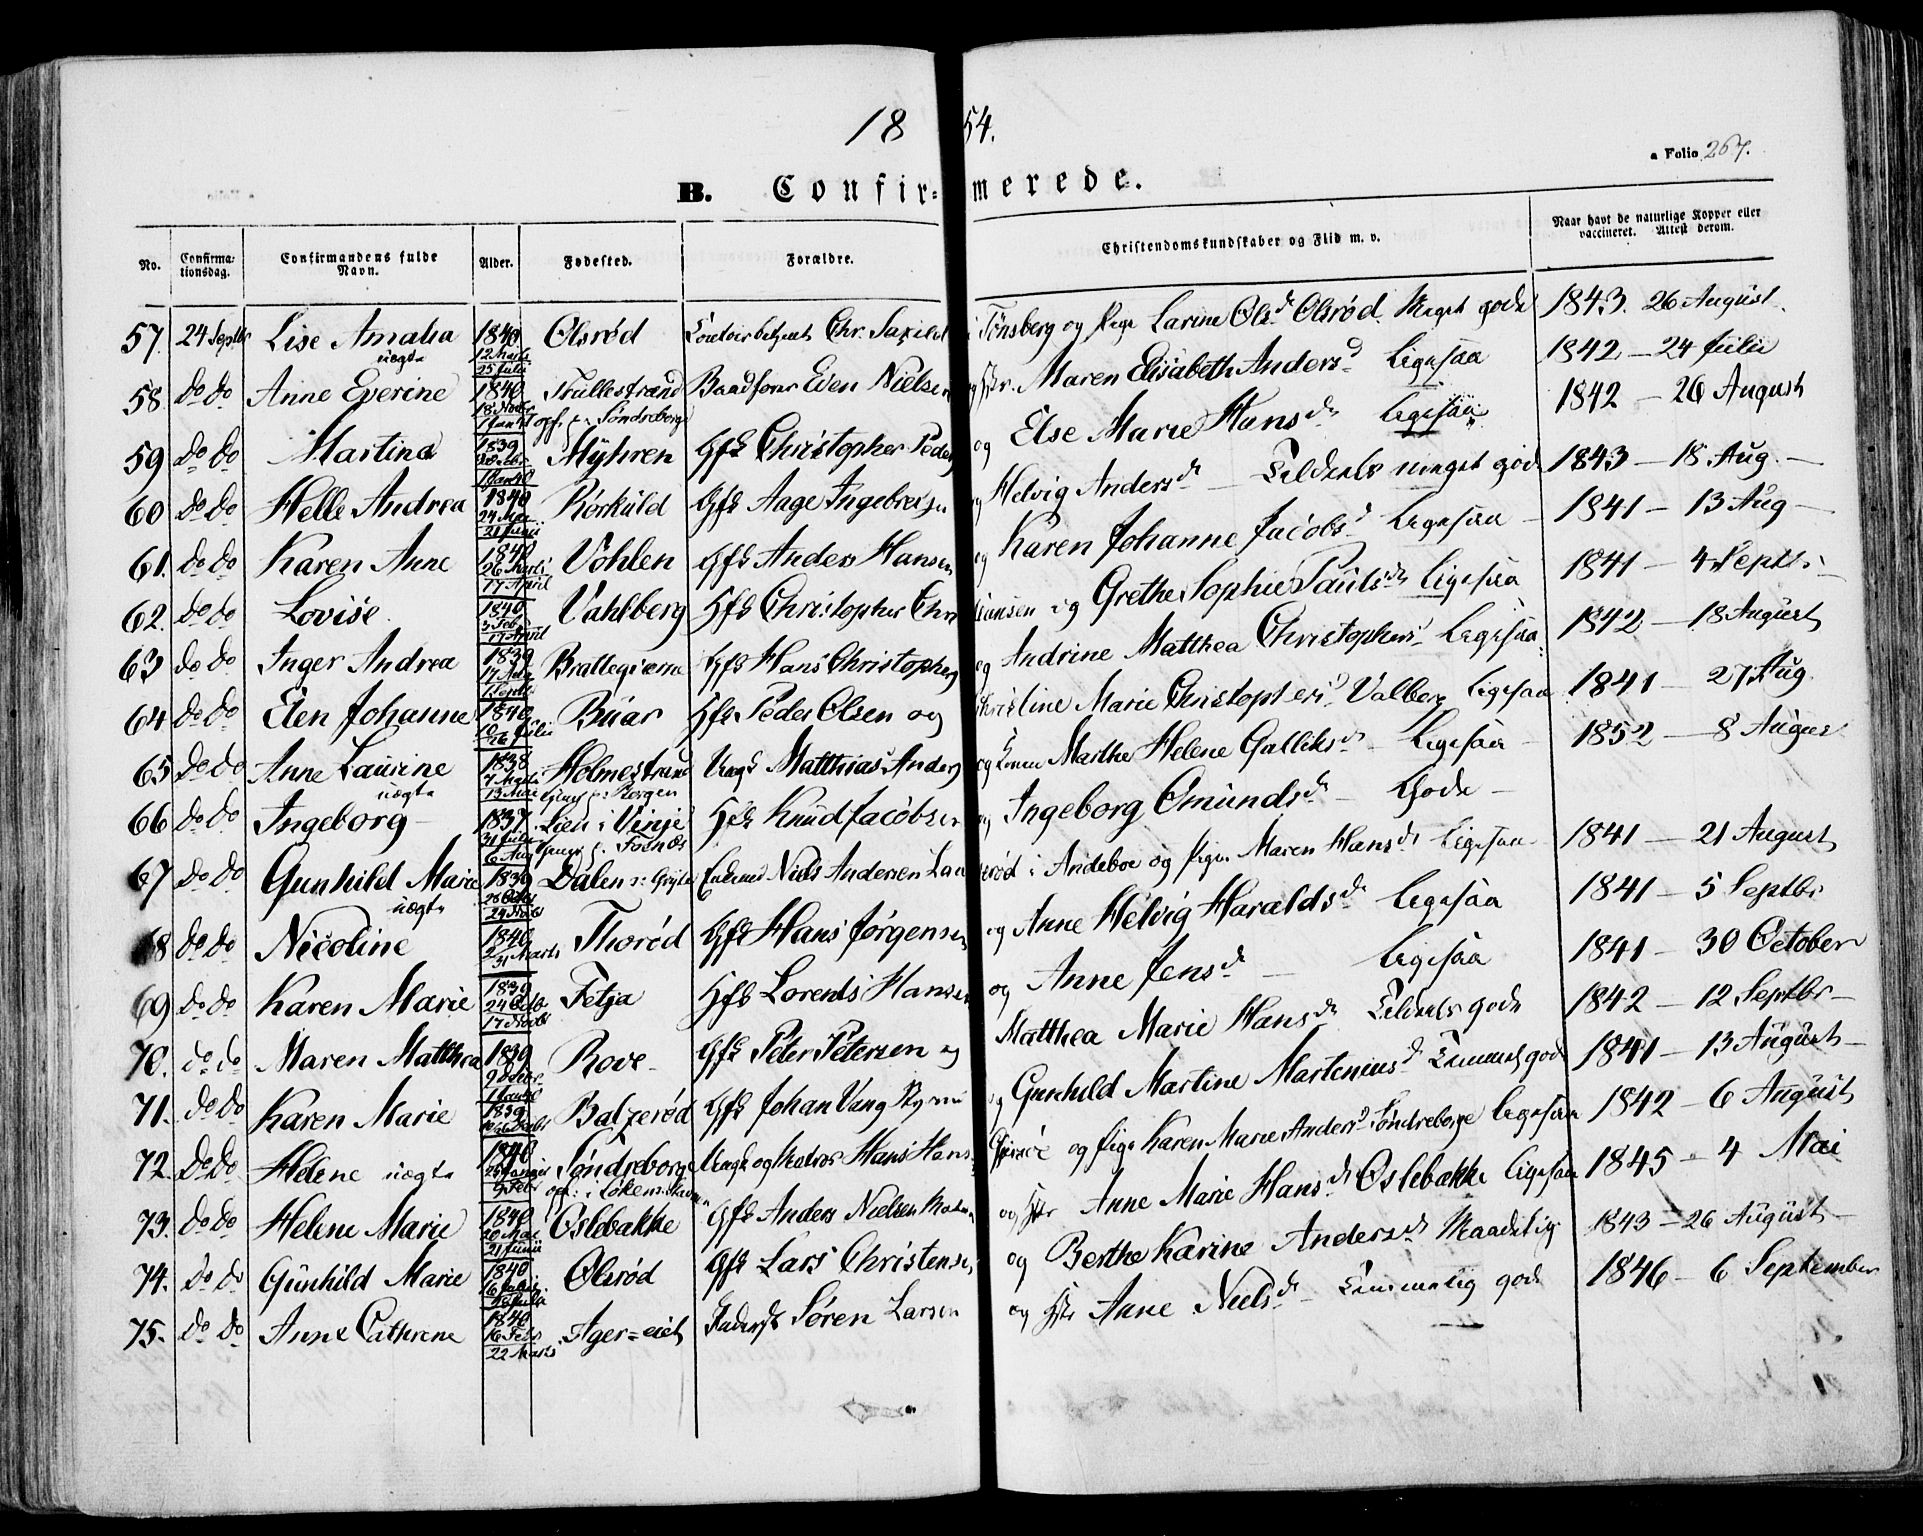 18 54.
a Folio 267.
B. Confir= merede.
No. Confirma- tionsdag. Confirmandens fulde Navn. Alder. Fødested. Forældre. Christendomskundskaber og Flid m. v. Naar havt de naturlige Kopper eller vaccineret. Attest derom.
57. 24 Septbr Lise Amalia uægte 1840 12 Marts 25 Julii Olsrød Chr. Saxild i Tønsberg og Pige Larine Ols d Olsrød. Meget gode 1843. 26 August.
58. do do Anne Everine 1840 18 Novbr Trullestrand opf. p. Søndreberge Baadfører Even Nielsen og Hstr. Maren Elisabeth Anders d Ligesaa 1842 - 24 Julii
59 do do Martina 1839 Myhren Gfd Christopher Peders og Else Marie Hans d. Ligesaa 1842 - 26 August
60 do do Helle Andrea 1840 24 Mai 21 Junii Rørkuld Gfd Aage Ingebretsen og Helvig Anders d. - Seldeels meget gode 1843 - 18 Aug. -
61. do do Karen Anne 1840 26 Marts 17 April Vohlen Gfd Anders Hansen og Karen Johanne Jacobs d Ligesaa - 1841 - 13 Aug -
62. do do Lovise 1840 3 Feb 17 April Vahlberg Hfd Christopher Chri stiansen og Grethe Sophie Pauls d. Ligesaa 1841 - 4 Septbr -
63 do do Inger Andrea 1839 Brattegjerne Gfd Hans Christophers og Andrine Matthea Christophers d Ligesaa 1842 - 18 August
64 do do Elen Johanne 1840 Buar Hfd Peder Olsen og Christine Marie Christophers d Valberg Ligesaa 1841 - 27 Aug.
65 do do Anne Laurine uægte 1838 7 Marts 13 Mai Holmestrand Ungk Matthias Anders og Marthe Helene Galliks d. - Ligesaa - 1852 - 8 August
66 do do Ingeborg - 1837 31 Julii 6 Aug Lien i Vinje Hfd Knud Jacobsen og Ingeborg Omunds d. - Gode -
67 do do Gunhild Marie uægte 1839 26 Octbr 24 Novbr Dalen Enkemd Niels Andersen Lan gerød i Andeboe og Pige Maren Hans d. Ligesaa 1841 - 21 August
68 do do Nicoline 1840 31 Marts Thorød Gfd Hans Jørgensen og Anne Helvig Haralds d. Ligesaa 1841 - 5 Septbr
69 do do Karen Marie 1839 24 Octbr 17 Novbr Fetja Hfd Lorents Hansen og Anne Jens d. - Ligesaa 1841 - 30 October
70. do do Maren Matthea 1839 Rove - Gfd Peter Petersen og Matthea Marie Hans d. Seldeels gode 1842 - 12 Septbr -
71. do do Karen Marie 1839 Balzerød Gfd Johan Vang og Gunhild Martine Martenius d. Temmel. gode 1841 - 13 August -
72. do do Helene uægte 1840 Søndreborge Ungk og Matros Hans Hans og Pige Karen Marie Anders d Søndreborge Ligesaa 1842 - 6 August
73. do do Helene Marie 1840 20 Mai 21 Junii Oslebakke Gfd Anders Nielsen og Hstr Anne Marie Hans d. Oslebakke Ligesaa 1845 - 4 Mai
74. do do Gunhild Marie 1840 Olsrød Gfd Lars Christensen og Berthe Karine Anders d. Maadelig 1843 - 26 August -
75. do do Anne Cathrine 1840 16 Febr 22 Marts Ager=eiet Søren Larsen og Hstr Anne Niels d. - Temmelig gode 1846 - 6 September